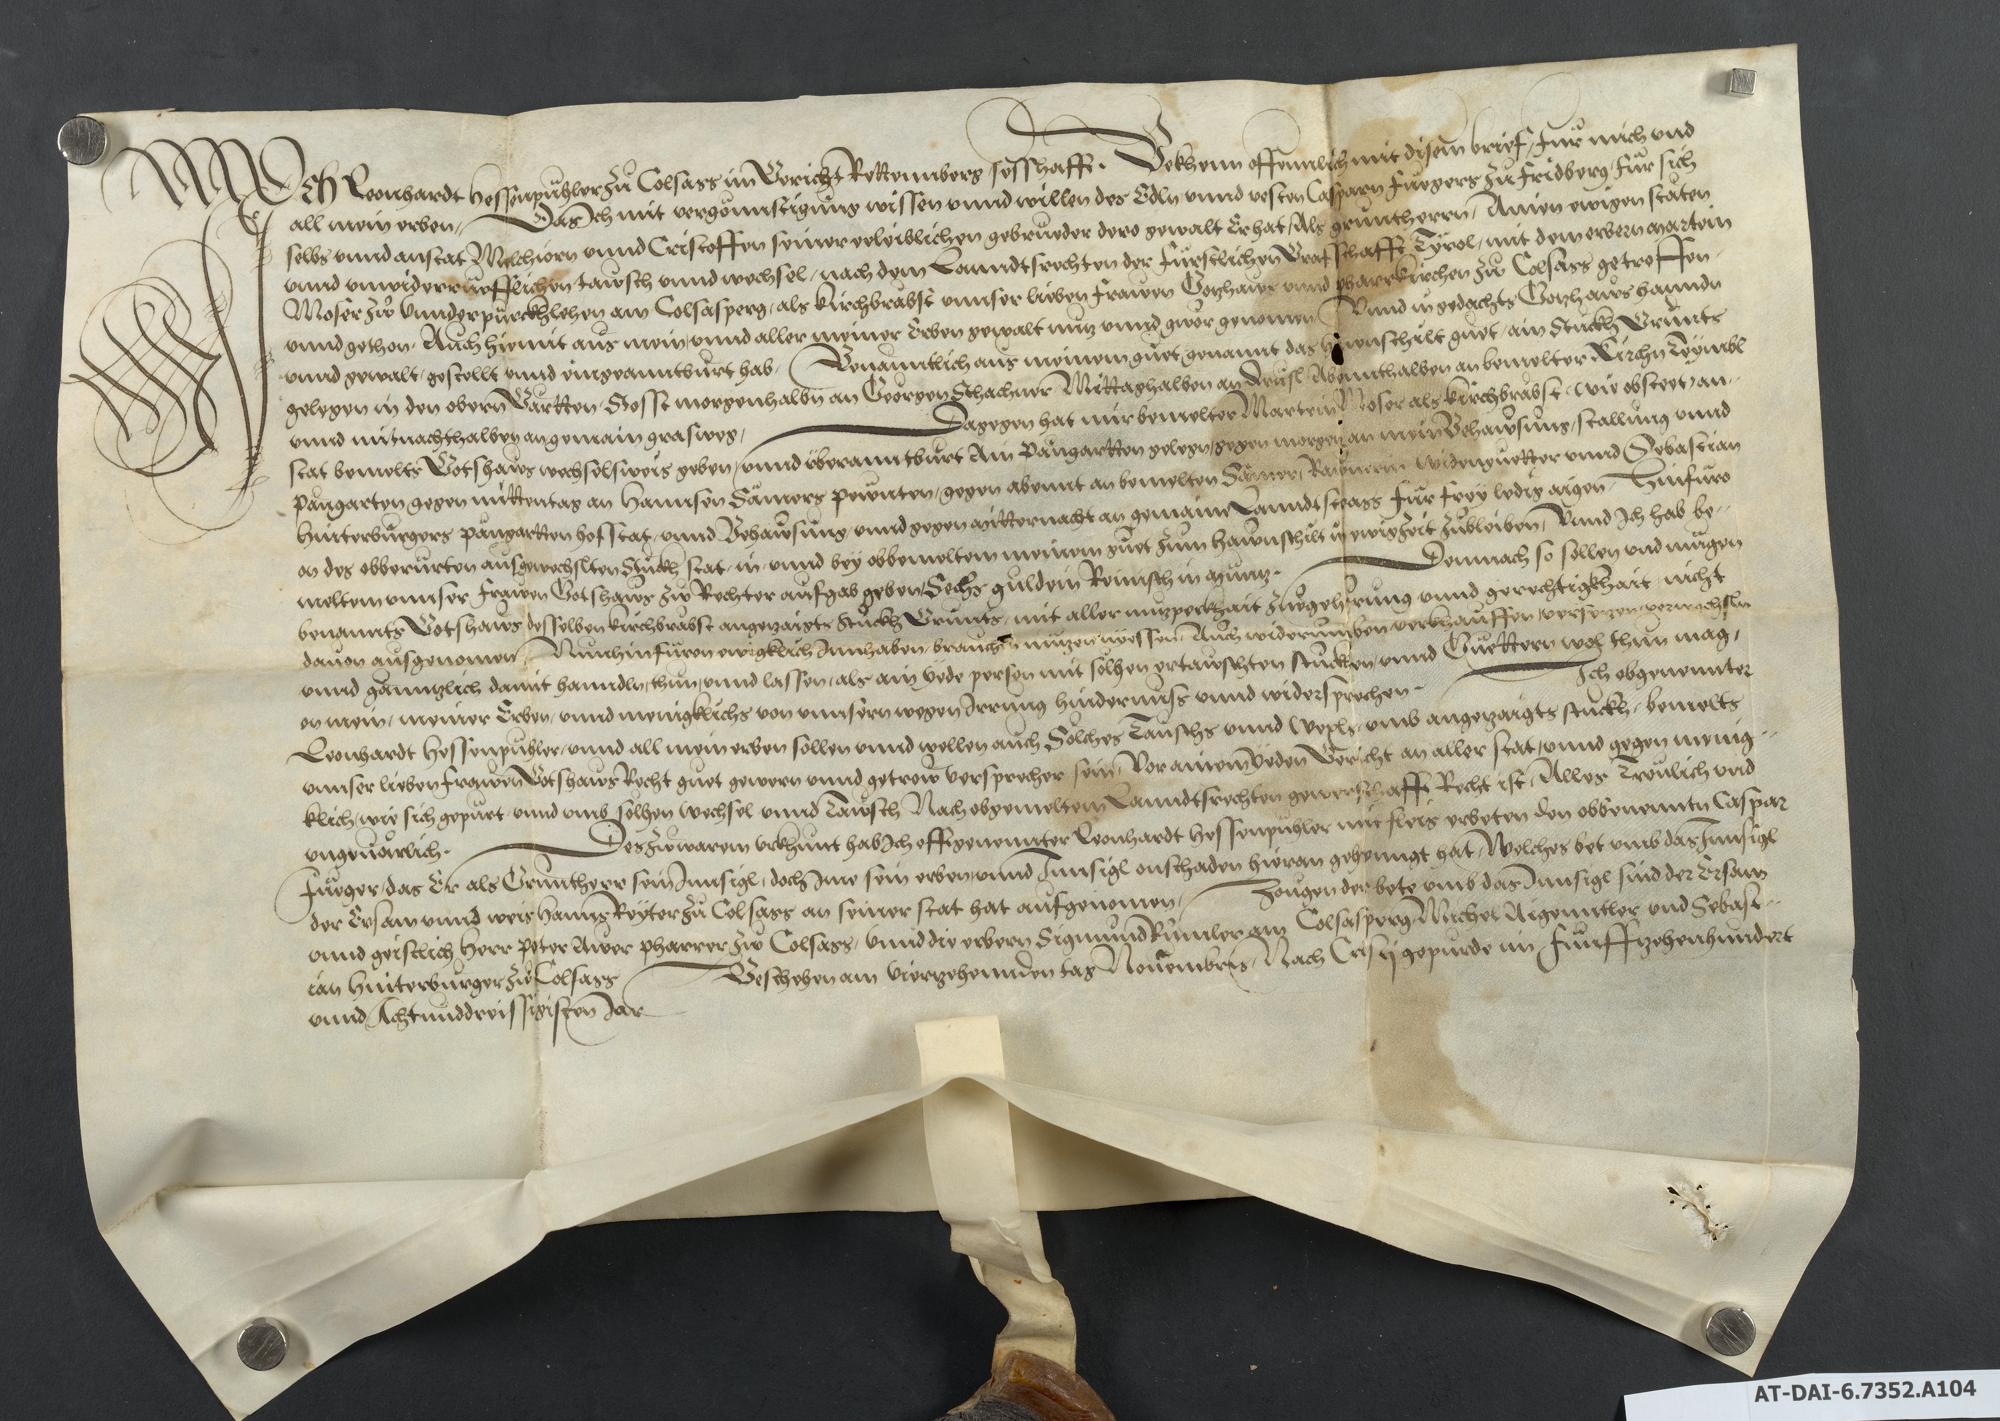 Ich Leonhardt Hessenpuhler zu Colsass im Gericht Rettemberg sesshafft. Bekhenn offennlich mit disem brief, fur mich und
all mein erben, Das Ich mit vergönnstigung wissen unnd willen des Edln unnd vesten Casparn Fuegers zu Fridberg, fur sich
selbs unnd anstat Melchiorn unnd Cristoffen seiner eeleiblichen gebrueder dero gewalt Er hat, Als gruntherrn, Ainen ewigen stäten
unnd unwiderruefflichen tausch unnd wechsel, nach dem Lanndtsrechten der furstlichen Graffschafft Tyrol, mit dem erbern Martein
Moser zu Unnderpurckhlehen am Colsasperg, als kirchbrabst unnser lieben frawen Gotzhaus unnd pharrkirchen zu Colsass getroffen
unnd gethon. Auch hiemit aus mein, unnd aller meiner Erben gewalt nuz unnd gwer genomen Unnd in gedachts Gotzhaws hanndn
unnd gewalt, gestellt unnd eingeanntburt hab. Benanntlich aus meinem guet, genannt das guet, ain Stuckh Grunts
gelegen in den obern Gartten. Stosst morgenhalbn an Georgen Schachner Mittaghalben an Abennthalben an bemelter Kirchn
unnd mitnachthalben an gemain grasweg, Dagegen hat mir bemelter Martein Moser als kirchbrabst, wie obsteet, an-
stat bemelts Gotshaws wechselsweis geben, unnd uberanntburt Am Pawngartten gelegen, gegen morgen an mein Behawsung, stallung unnd
Paungarten gegen mittentag an Hannsen Sämers pewnten, gegen abennt an bemelten Sämer, widenguetter unnd Sebastian
Hinterburgers paungartten hofstat, unnd Behawsung, unnd gegen mitternacht an gemaine Lanndtstrass fur frey ledig aigen. Hinfuro
an des obberurten ausgewechslten Stuckh stat, in, unnd bey obbemeltem meinem guet zum Hawnschilt in ewig Zeit zubleiben, Unnd Ich hab be-
meltem unnser frawen Gotshaws zu Rechter aufgab geben, Sechs guldein Reinisch in Muntz. Demnach so sollen und mugen
benannts Gotshaws desselben kirchbrabst angezaigts stuckh Grunts, mit aller nuzperkhait zuegehorung unnd gerechtigkhait, nicht
davon ausgenomen, Nun hinfuron ewigklich Innhaben, brauchen nutzen niessen, Auch widerumben verkhauffen, versetzen, verwechsln
unnd gänntzlich damit hanndln, thun, unnd lassen, als ain yede person mit solhen ertauschten stucken, unnd Guettern wol thun mag,
on mein, meiner Erben, unnd menigklichs von unnsern wegen Irrung hindernuss unnd widersprechen. Ich obgenennter
Leonhardt Hessenpuhler, unnd all mein erben sollen unnd wellen auch Solches Tauschs unnd Wexls, umb angezaigts stuckh, bemelts
unnser lieben frawen Gotshaws Recht guet gewern unnd getrew versprecher sein, Vor ainem yeden Gericht an aller stat, unnd gegen menig-
klich, wie sich gepurt, unnd umb solhen wechsel unnd Tausch Nach obgemeltem Lanndtsrechten gewerschafft Recht ist, Alles Treulich und
ungevärlich. Des zu warem urkhunt hab Ich offtgenennter Leonhardt Hessenpuhler mit fleis erbeten den obbenenntn Caspar
Fueger, das Er als Gruntherr sein Innsigl, doch Ime sein erben, unnd Innsigl onschaden hieran gehenngt hat, Welches bet umb das Innsigl
der Ersam unnd weis Hanns Reyter zu Colsass an seiner stat hat aufgenomen, Zeugen der bete umb das Innsigl sind der Ersam
unnd geistlich Herr Peter Awer pharrer zu Colsass, unnd die erbern Sigmund Rumler am Colsasperg, Michel Aigenntler und Sebast-
ian Hinterburger zu Colsass Geschehen am vierzehennden tag Novembris, Nach Cristj gepurde im Funffzehenhundert
unnd Achtunddreissigisten Jar
AT-DAI-6.7352.A104